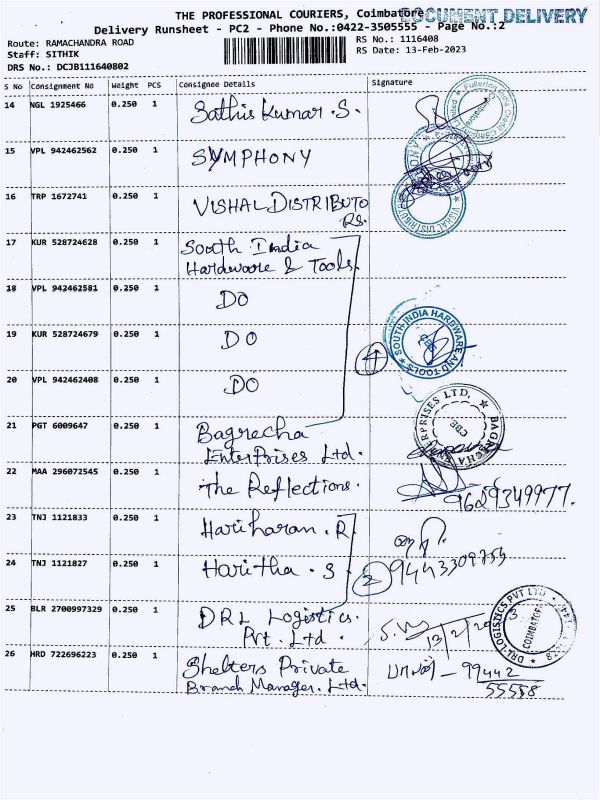 THE PROFESSIONAL COURIERS, Coimbatore
DOCUMENT DELIVERY
Delivery Runsheet - PC2 - Phone No.:0422-3505555 - Page No.:2
Route: RAMACHANDRA ROAD
RS No.: 1116408
Staff: SITHIK
RS Date: 13-Feb-2023
DRS No.: DCJB111640802
S No Consignment No Weight PCS Consignee Details Signature
14 NGL 1925466 0.250 1 Sathis Kumar .S.
Fullerton India Credit
15 VPL 942462562 0.250 1 SYMPHONY
16 TRP 1672741 0.250 1 VISHAL DISTRIBUTO
RS.
VISHAL DISTRIBUTORS
17 KUR 528724628 0.250 1 South India
Hardware & Tools.
18 VPL 942462581 0.250 1 DO
19 KUR 528724679 0.250 1 DO
4
SOUTH INDIA HARDWARE AND TOOLS
CBE
20 VPL 942462408 0.250 1 DO
21 PGT 6009647 0.250 1 Bagrecha
Enterprises Ltd.
BAGRECHA ENTERPRISES LTD.
CBE
22 MAA 296072545 0.250 1 The Reflections.
9629349977.
23 TNJ 1121833 0.250 1 Hariharan . R
24 TNJ 1121827 0.250 1 Haritha . S
2
9443309759
25 BLR 2700997329 0.250 1 DRL Logistics.
Pvt. Ltd .
13/2/20
DRL LOGISTICS PVT LTD
COIMBATORE
26 HRD 722696223 0.250 1 Shelters Private
Branch Manager. Ltd.
99442
55558